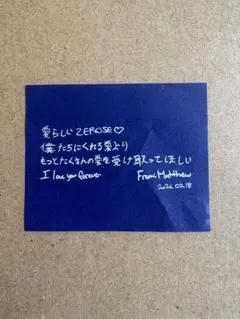 愛らしい ZEROSE♡
僕たちにくれる愛より
もっとたくさんの愛を受け取ってほしい
I love you forever
From. Matthew
2024.02.18